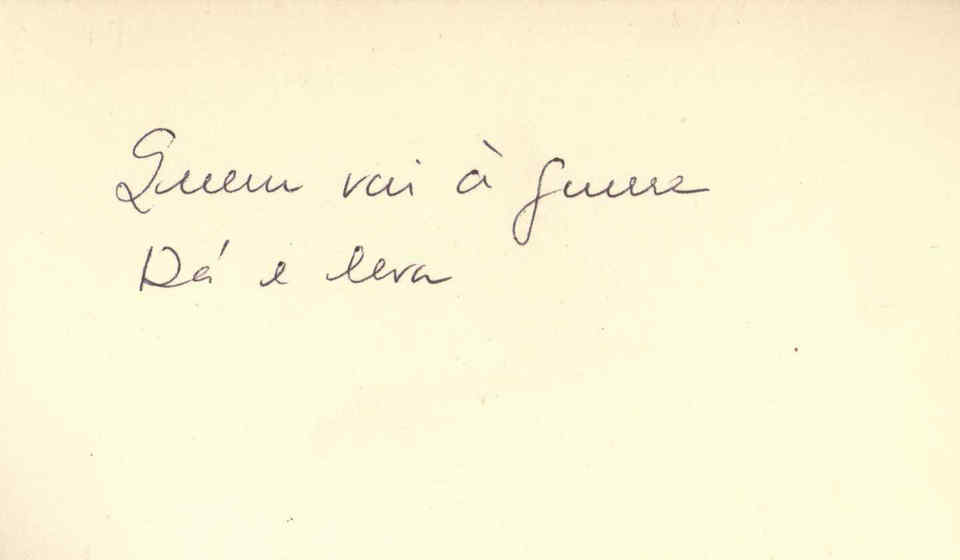 Quem vai à guerra
Dá e leva